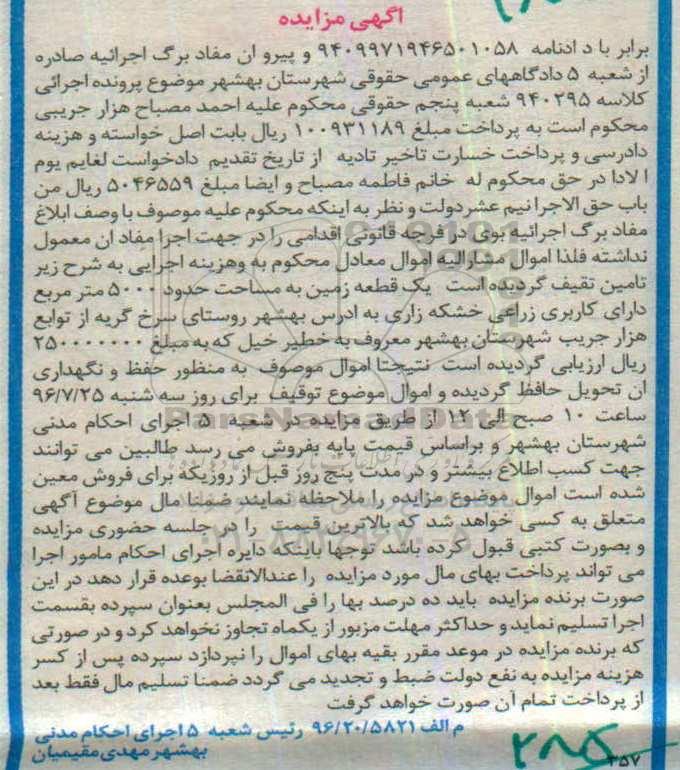 آگهی مزایده
برابر با د ادنامه ۹۴۰۹۹۷۱۹۴۶۵۰۱۰۵۸ و پیرو ان مفاد برگ اجرائیه صادره
از شعبه ۵ دادگاههای عمومی حقوقی شهرستان بهشهر موضوع پرونده اجرائی
کلاسه ۹۴۰۲۹۵ شعبه پنجم حقوقی محکوم علیه احمد مصباح هزار جریبی
محکوم است به پرداخت مبلغ ۱۰۰۹۳۱۱۸۹ ریال بابت اصل خواسته و هزینه
دادرسی و پرداخت خسارت تاخیر تادیه از تاریخ تقدیم دادخواست لغایم یوم
ا لادا در حق محکوم له خانم فاطمه مصباح و ایضا مبلغ ۵۰۴۶۵۵۹ ریال من
باب حق الاجرا نیم عشر دولت و نظر به اینکه محکوم علیه موصوف با وصف ابلاغ
مفاد برگ اجرائیه بوی در فرجه قانونی اقدامی را در جهت اجرا مفاد ان معمول
نداشته فلذا اموال مشارالیه اموال معادل محکوم به وهزینه اجرایی به شرح زیر
تامین تقیف گردیده است یک قطعه زمین به مساحت حدود ۵۰۰۰ متر مربع
دارای کاربری زراعی خشکه زاری به ادرس بهشهر روستای سرخ گریه از توابع
هزار جریب شهرستان بهشهر معروف به خطیر خیل که به مبلغ ۲۵۰۰۰۰۰۰۰
ریال ارزیابی گردیده است نتیجتا اموال موصوف به منظور حفظ و نگهداری
ان تحویل حافظ گردیده و اموال موضوع توقیف برای روز سه شنبه ۹۶/۷/۲۵
ساعت ۱۰ صبح الی ۱۲ از طریق مزایده در شعبه ۵ اجرای احکام مدنی
شهرستان بهشهر و براساس قیمت پایه بفروش می رسد طالبین می توانند
جهت کسب اطلاع بیشتر و در مدت پنج روز قبل از روزیکه برای فروش معین
شده است اموال موضوع مزایده را ملاحظه نمایند ضمنا مال موضوع آگهی
متعلق به کسی خواهد شد که بالاترین قیمت را در جلسه حضوری مزایده
و بصورت کتبی قبول کرده باشد توجها باینکه دایره اجرای احکام مامور اجرا
می تواند پرداخت بهای مال مورد مزایده را عندالاتقضا بوعده قرار دهد در این
صورت برنده مزایده باید ده درصد بها را فی المجلس بعنوان سپرده بقسمت
اجرا تسلیم نماید و حداکثر مهلت مزبور از یکماه تجاوز نخواهد کرد و در صورتی
که برنده مزایده در موعد مقرر بقیه بهای اموال را نپردازد سپرده پس از کسر
هزینه مزایده به نفع دولت ضبط و تجدید می گردد ضمنا تسلیم مال فقط بعد
از پرداخت تمام آن صورت خواهد گرفت
م الف ۹۶/۲۰/۵۸۲۱ رئیس شعبه ۵ اجرای احکام مدنی
بهشهر مهدی مقیمیان
۳۵۷
ParsNamadData
۰۲۱-۸۸۳۴۹۶۷۰-۵